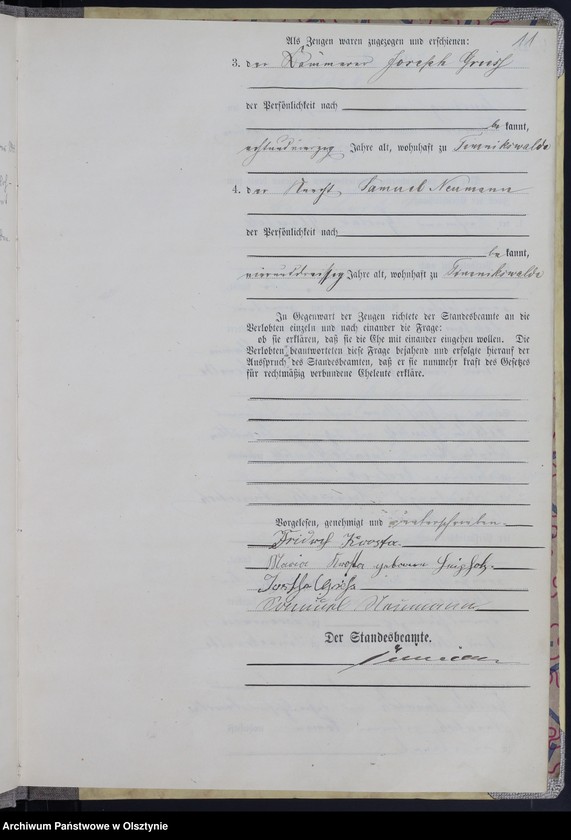 11
Als Zeugen waren zugezogen und erschienen:
3. der Kämmerer Joseph
der Persönlichkeit nach
be kannt,
achtundvierzig Jahre alt, wohnhaft zu
4. der Knecht Samuel Neumann
der Persönlichkeit nach
be kannt,
vierunddreißig Jahre alt, wohnhaft zu
In Gegenwart der Zeugen richtete der Standesbeamte an die
Verlobten einzeln und nach einander die Frage:
ob sie erklären, daß sie die Ehe mit einander eingehen wollen. Die
Verlobten beantworteten diese Frage bejahend und erfolgte hierauf der
Ausspruch des Standesbeamten, daß er sie nunmehr kraft des Gesetzes
für rechtmäßig verbundene Eheleute erkläre.
Vorgelesen, genehmigt und unterschrieben
Kroosta
Maria Kroosta geborene
Samuel Naumann
Der Standesbeamte.
Archiwum Państwowe w Olsztynie